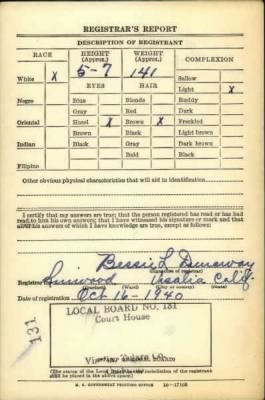 REGISTRAR'S REPORT
DESCRIPTION OF REGISTRANT
RACE HEIGHT (Approx.) WEIGHT (Approx.) COMPLEXION
White X 5-7 141 Sallow
EYES HAIR Light X
Negro Blue Blonde Ruddy
Gray Red Dark
Oriental Hazel X Brown X Freckled
Brown Black Light brown
Indian Black Gray Dark brown
Bald Black
Filipino
Other obvious physical characteristics that will aid in identification
I certify that my answers are true; that the person registered has read or has had
read to him his own answers; that I have witnessed his signature or mark and that
all of his answers of which I have knowledge are true, except as follows:
Bessie L Dunaway
(Signature of registrar)
Registrar Linnwood Visalia Calif
(Precinct) (Ward) (City or county) (State)
Date of registration Oct 16-1940
LOCAL BOARD NO. 131
Court House
131
Tulare Co.
(The stamp of the Local Board having jurisdiction of the registrant
shall be placed in the above space.)
U. S. GOVERNMENT PRINTING OFFICE 16-17105